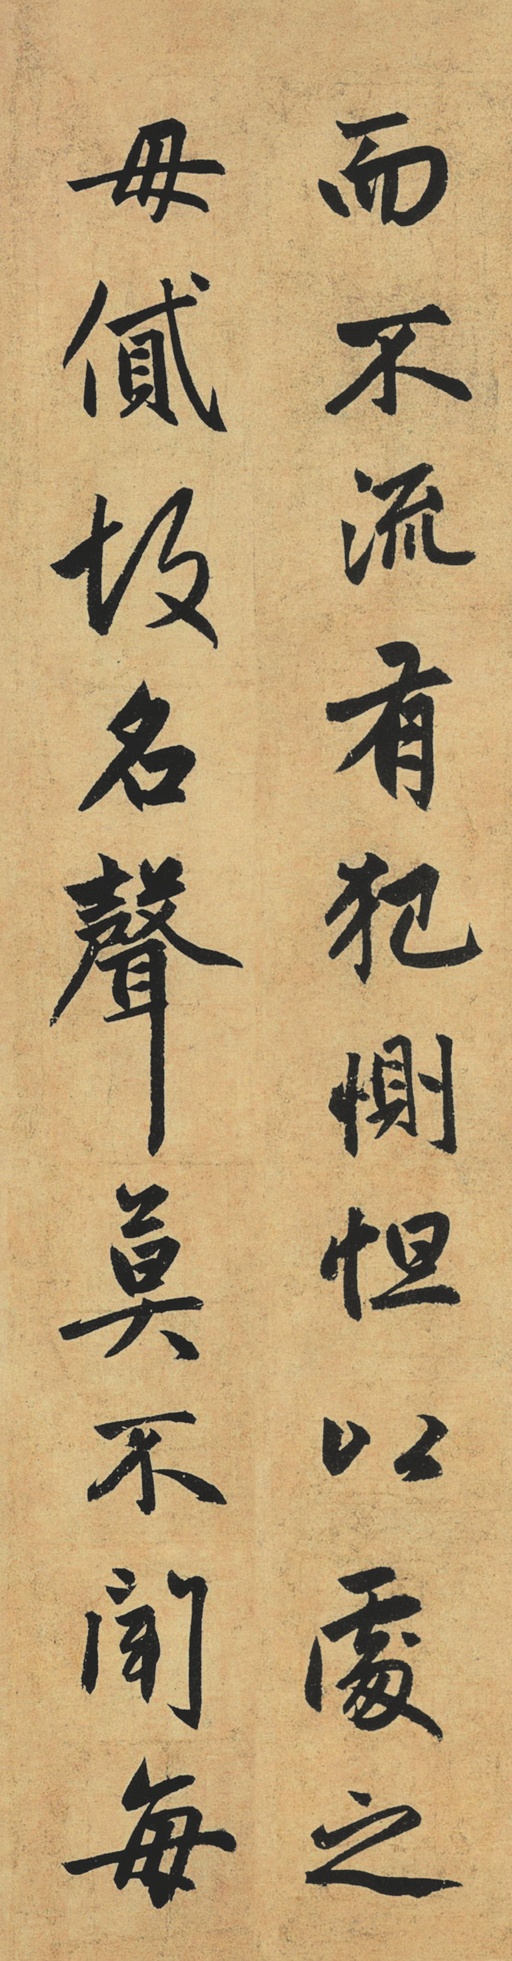 而不流有犯惻怛以處之
毋貳故名聲莫不聞每